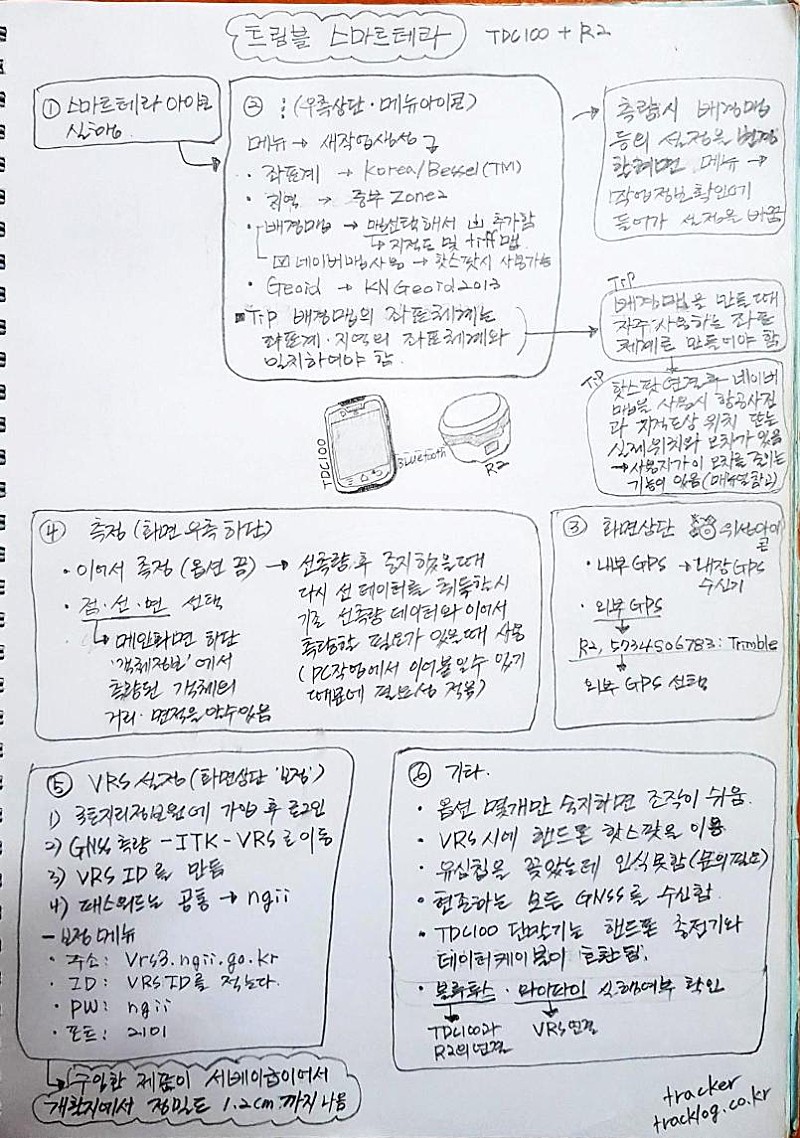 트림블 스마트테라 TDC100 + R2
① 스마트테라 아이콘
실행.
② ⋮ (우측상단 · 메뉴아이콘)
메뉴 → 새작업생성
· 좌표계 → Korea/Bessel(TM)
· 지역 → 중부 Zone2
· 배경맵 → 맵선택해서 추가함
↳ 지적도 및 tiff맵.
☑ 네이버맵사용 → 핫스팟시 사용가능
· Geoid → KNGeoid2013
■ Tip 배경맵의 좌표체계는
좌표계 · 지역의 좌표체계와
일치하여야 함.
→ 측량시 배경맵
등의 설정을 변경
할려면 메뉴 →
작업정보확인에
들어가 설정을 바꿈
Tip
배경맵을 만들때
자주 사용하는 좌표
체계로 만들어야 함
Tip
핫스팟 연결후 네이버
맵을 사용시 항공사진
과 지적도상 위치 또는
실제위치와 오차가 있음
→ 사용자가 이 오차를 줄이는
기능이 있음 (매뉴얼참고)
TDC100
Bluetooth
R2
④ 측정 (화면 우측 하단)
· 이어서 측정 (옵션 끔) → 선측량 후 중지했을때
다시 선 데이터를 취득할시
기존 선측량 데이터와 이어서
측량할 필요가 있을때 사용
(PC작업에서 이어붙일수 있기
때문에 필요성 적음)
· 점 · 선 · 면 선택
↳ 메인화면 하단
'객체정보'에서
측량된 객체의
거리 · 면적을 알수있음
③ 화면상단 위성아이
콘
· 내부 GPS → 내장 GPS
수신기
· 외부 GPS
R2, 5734506783: Trimble
외부 GPS 선택
⑤ VRS 설정 (화면상단 '보정')
1) 국토지리정보원에 가입 후 로그인
2) GNSS 측량 - ITK - VRS로 이동
3) VRS ID를 만듬
4) 패스워드는 공통 → ngii
- 보정메뉴
· 주소: Vrs3.ngii.go.kr
· ID: VRS ID를 적는다.
· PW: ngii
· 포트: 2101
↳ 구입한 제품이 서베이급이어서
개활지에서 정밀도 1.2cm 까지 나옴
⑥ 기타.
· 옵션 몇개만 숙지하면 조작이 쉬움.
· VRS 시에 핸드폰 핫스팟을 이용
· 유심칩을 꽂았는데 인식못함 (문의필요)
· 현존하는 모든 GNSS를 수신함.
· TDC100 단말기는 핸드폰 충전기와
데이터케이블이 호환됨.
· 블루투스 · 와이파이 실행여부 확인
TDC100과
R2의 연결
VRS 연결
tracker
tracklog.co.kr